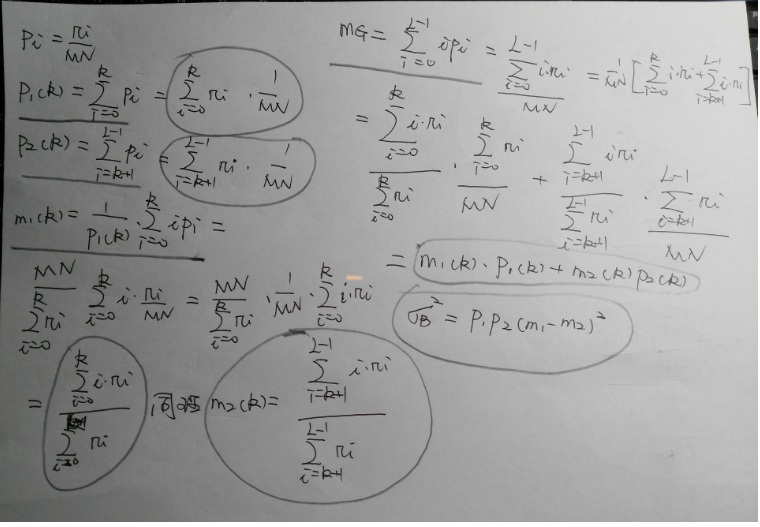 Pi = ni/MN
P1(k) = ∑_{i=0}^{k} Pi = ∑_{i=0}^{k} ni · 1/MN
P2(k) = ∑_{i=k+1}^{L-1} Pi = ∑_{i=k+1}^{L-1} ni · 1/MN
m1(k) = 1/P1(k) · ∑_{i=0}^{k} iPi =
MN/∑_{i=0}^{k} ni ∑_{i=0}^{k} i·ni/MN = MN/∑_{i=0}^{k} ni · 1/MN · ∑_{i=0}^{k} i·ni
= ∑_{i=0}^{k} i·ni / ∑_{i=0}^{k} ni ,同理 m2(k) = ∑_{i=k+1}^{L-1} i·ni / ∑_{i=k+1}^{L-1} ni
MG = ∑_{i=0}^{L-1} iPi = ∑_{i=0}^{L-1} i·ni / MN = 1/MN [∑_{i=0}^{k} i·ni + ∑_{i=k+1}^{L-1} i·ni]
= ∑_{i=0}^{k} i·ni / ∑_{i=0}^{k} ni · ∑_{i=0}^{k} ni / MN + ∑_{i=k+1}^{L-1} i ni / ∑_{i=k+1}^{L-1} ni · ∑_{i=k+1}^{L-1} ni / MN
= m1(k)·P1(k) + m2(k)P2(k)
σB² = P1P2(m1-m2)²